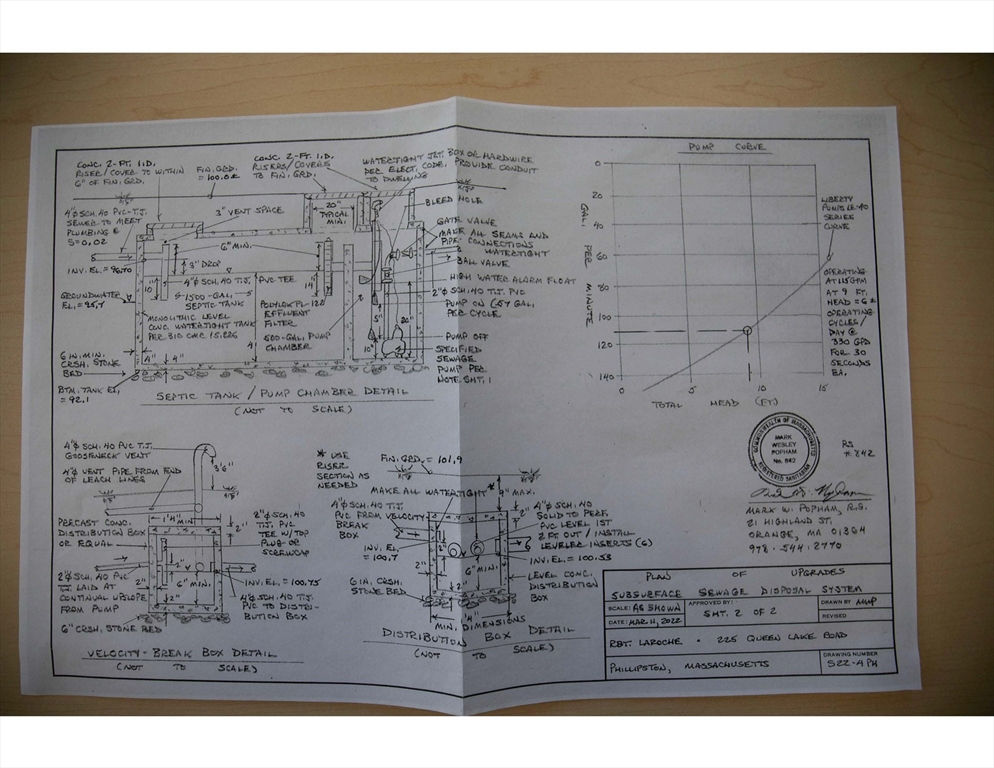 CONC. 2-FT. I.D.
RISER/COVER TO WITHIN
6" OF FIN. GRD.
FIN. GRD.
= 100.0±
CONC. 2-FT. I.D.
RISERS/COVERS
TO FIN. GRD.
WATERTIGHT JCT. BOX OR HARDWIRE
PER ELECT. CODE, PROVIDE CONDUIT
TO DWELLING
4"φ SCH. 40 PVC-T.J.
SEWER TO MEET
PLUMBING &
S=0.02
3" VENT SPACE
20"
TYPICAL
MIN.
BLEED HOLE
GATE VALVE
MAKE ALL SEAMS AND
PIPE CONNECTIONS
WATERTIGHT
BALL VALVE
6" MIN.
3" DROP
INV. EL. = 96.70
10"
4"φ SCH. 40 T.J. PVC TEE
14"
HIGH WATER ALARM FLOAT
2"φ SCH. 40 T.J. PVC
GROUNDWATER
EL. = 95.7
1500-GAL.
SEPTIC TANK
POLYLOK PL-122
EFFLUENT
FILTER
PUMP ON (57 GAL.
PER CYCLE)
MONOLITHIC LEVEL
CONC. WATERTIGHT TANK
PER 310 CMR 15.226
500-GAL. PUMP
CHAMBER
5"
20"
10"
PUMP OFF
SPECIFIED
SEWAGE
PUMP PER
NOTE SHT. 1
6 IN. MIN.
CRSH. STONE
BED
4"
4"
BTM. TANK EL.
= 92.1
SEPTIC TANK / PUMP CHAMBER DETAIL
(NOT TO SCALE)
PUMP CURVE
0
20
40
60
80
100
120
140
GAL. PER MINUTE
0
5
10
15
TOTAL HEAD (FT)
LIBERTY
PUMPS LE-40
SERIES
CURVE
OPERATING
AT 115 GPM
AT 9 FT.
HEAD = 6±
OPERATING
CYCLES/
DAY @
330 GPD
FOR 30
SECONDS
EA.
4"φ SCH. 40 PVC T.J.
GOOSENECK VENT
4"φ VENT PIPE FROM END
OF LEACH LINES
3'6"
PRECAST CONC.
DISTRIBUTION BOX
OR EQUAL
1'4" MIN
2"
2"φ SCH. 40
T.J. PVC
TEE W/TOP
PLUG OR
SCREWCAP
2"φ SCH. 40 PVC
T.J. LAID AT
CONTINUAL UPSLOPE
FROM PUMP
2"
6" MIN.
2"
2"
INV. EL. = 100.75
4"φ SCH. 40 T.J.
PVC TO DISTRI-
BUTION BOX
6" CRSH. STONE BED
VELOCITY-BREAK BOX DETAIL
(NOT TO SCALE)
* USE
RISER
SECTION AS
NEEDED
FIN. GRD. = 101.9
MAKE ALL WATERTIGHT
*
9" MAX.
4"φ SCH. 40 T.J.
PVC FROM VELOCITY
BREAK
BOX
2"
4"φ SCH. 40
SOLID TO PERF.
PVC LEVEL 1ST
2 FT OUT / INSTALL
LEVELER INSERTS (6)
INV. EL.
= 100.7
2"
INV. EL. = 100.53
6" MIN.
6 IN. CRSH.
STONE BED
2"
2"
LEVEL CONC.
DISTRIBUTION
BOX
MIN. DIMENSIONS
DISTRIBUTION BOX DETAIL
(NOT TO SCALE)
COMMONWEALTH OF MASSACHUSETTS
MARK
WESLEY
POPHAM
No. 842
REGISTERED SANITARIAN
RS
# 842
MARK W. POPHAM, R.S.
21 HIGHLAND ST.
ORANGE, MA 01364
978-544-2770
PLAN OF UPGRADES
SUBSURFACE SEWAGE DISPOSAL SYSTEM
SCALE: AS SHOWN
APPROVED BY:
DRAWN BY MWP
DATE: MAR 11, 2022
SHT. 2 OF 2
REVISED
RBT. LAROCHE - 225 QUEEN LAKE ROAD
PHILLIPSTON, MASSACHUSETTS
DRAWING NUMBER
S22-4 PH